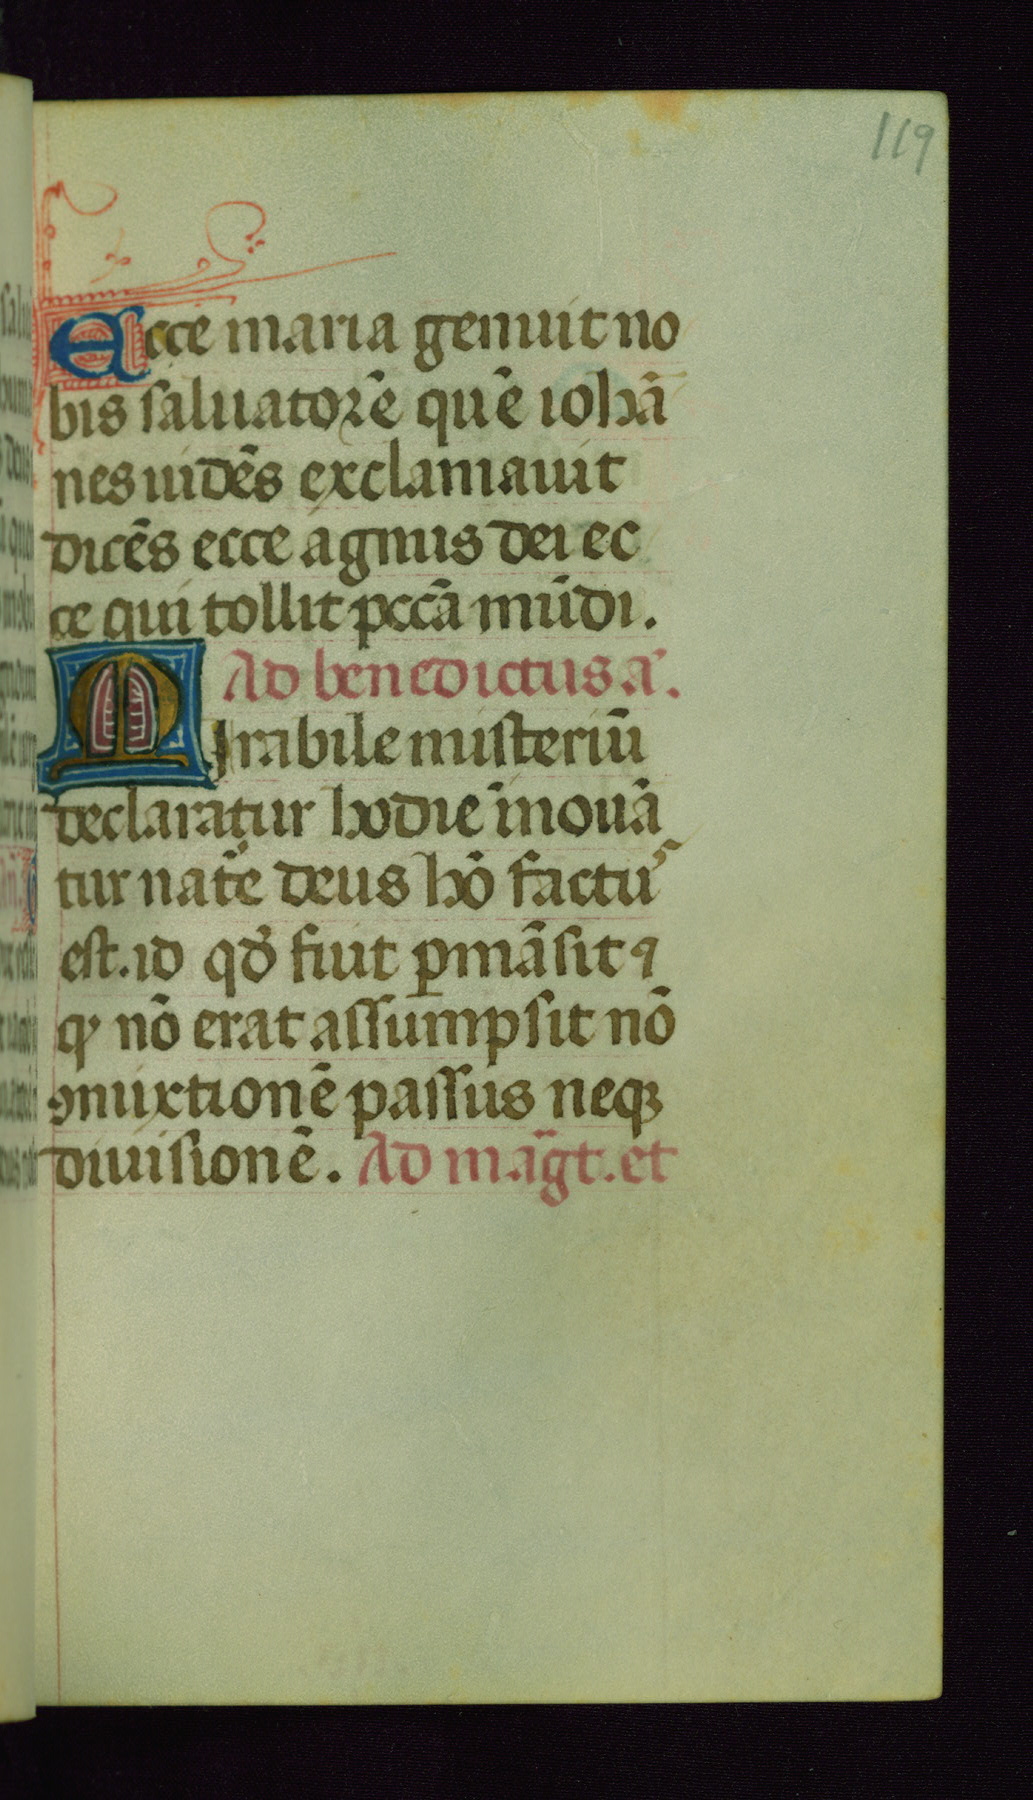 119
Ecce maria genuit no
bis saluatorē quē iohā
nes uidēs exclamauit
dicēs ecce agnus dei ec
ce qui tollit pccā mūdi.
Ad benedictus añ.
Mirabile misteriū
declaratur hodie īnouā
tur nat̄e deus hō factuˢ
est. id qđ fuit ꝑmāsit ⁊
qꝫ nō erat assumpsit nō
ꝯmixtionē passus neqꝫ
diuisionē. Ad māgt. et